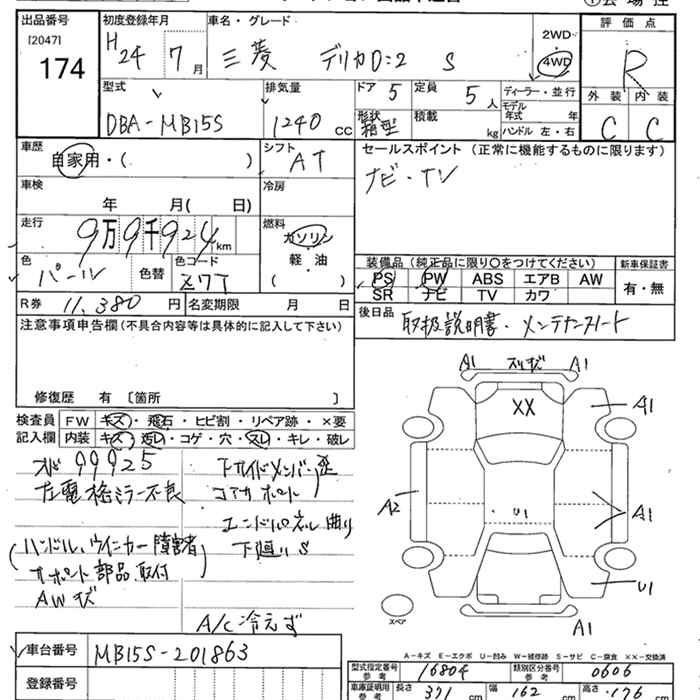 出品番号 初度登録年月 車名・グレード 評価点
[2047] H24 7月 三菱 デリカD:2 S 2WD・4WD R
174
型式 排気量 ドア 5 定員 5人 ディーラー・並行 外装 内装
DBA-MB15S 1240 cc 形状 箱型 積載 kg モデル年式 年 C C
ハンドル 左・右
車歴 シフト セールスポイント (正常に機能するものに限ります)
自家用・( ) AT ナビ・TV
車検 冷房
年 月( 日)
走行 燃料
9万9千924km ガソリン
色 色替 色コード 軽・油 装備品(純正品に限り○をつけてください) 新車保証書
パール Z7T ( ) PS PW ABS エアB AW 有・無
SR ナビ TV カワ
R券 11,380円 名変期限 月 日 後日品 取扱説明書・メンテナンスノート
注意事項申告欄(不具合内容等は具体的に記入して下さい)
修復歴 有 [箇所 ]
検査員 FW キズ・飛石・ヒビ割・リペア跡・×要
記入欄 内装 キズ・汚レ・コゲ・穴・スレ・キレ・破レ
99925
左電格ミラー不良 コアサポート
エンドパネル曲り
(ハンドル、ウインカー障害者 下廻りS
サポート部品取付)
AWキズ
A/C冷えず
A1 スリキズ A1
XX A1
A2 U1 A1
U1
A1
スペア
A-キズ E-エクボ U-凹み W-補修跡 S-サビ C-腐食 ××-交換済
車台番号 MB15S-201863
登録番号
型式指定番号 参考 16804 類別区分番号 参考 0606
車庫証明用 参考 長さ 371 cm 幅 162 cm 高さ 176 cm